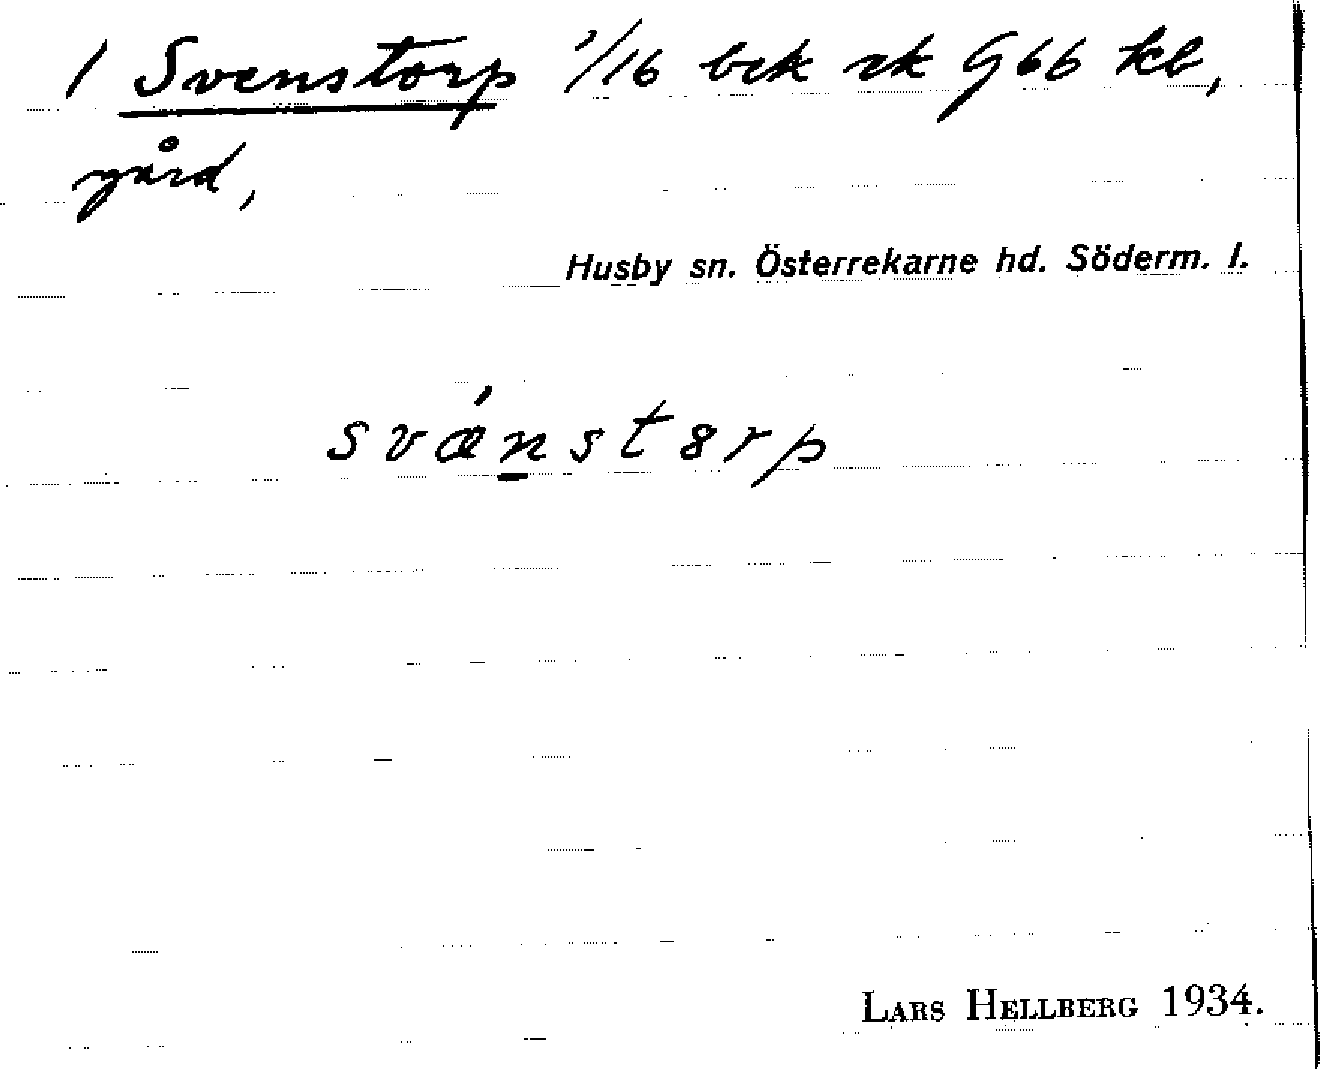 1 Svenstorp 1/16 bek rk G66 kb,
gård,
Husby sn. Österrekarne hd. Söderm. l.
svǽn̲stɘrp
LARS HELLBERG 1934.